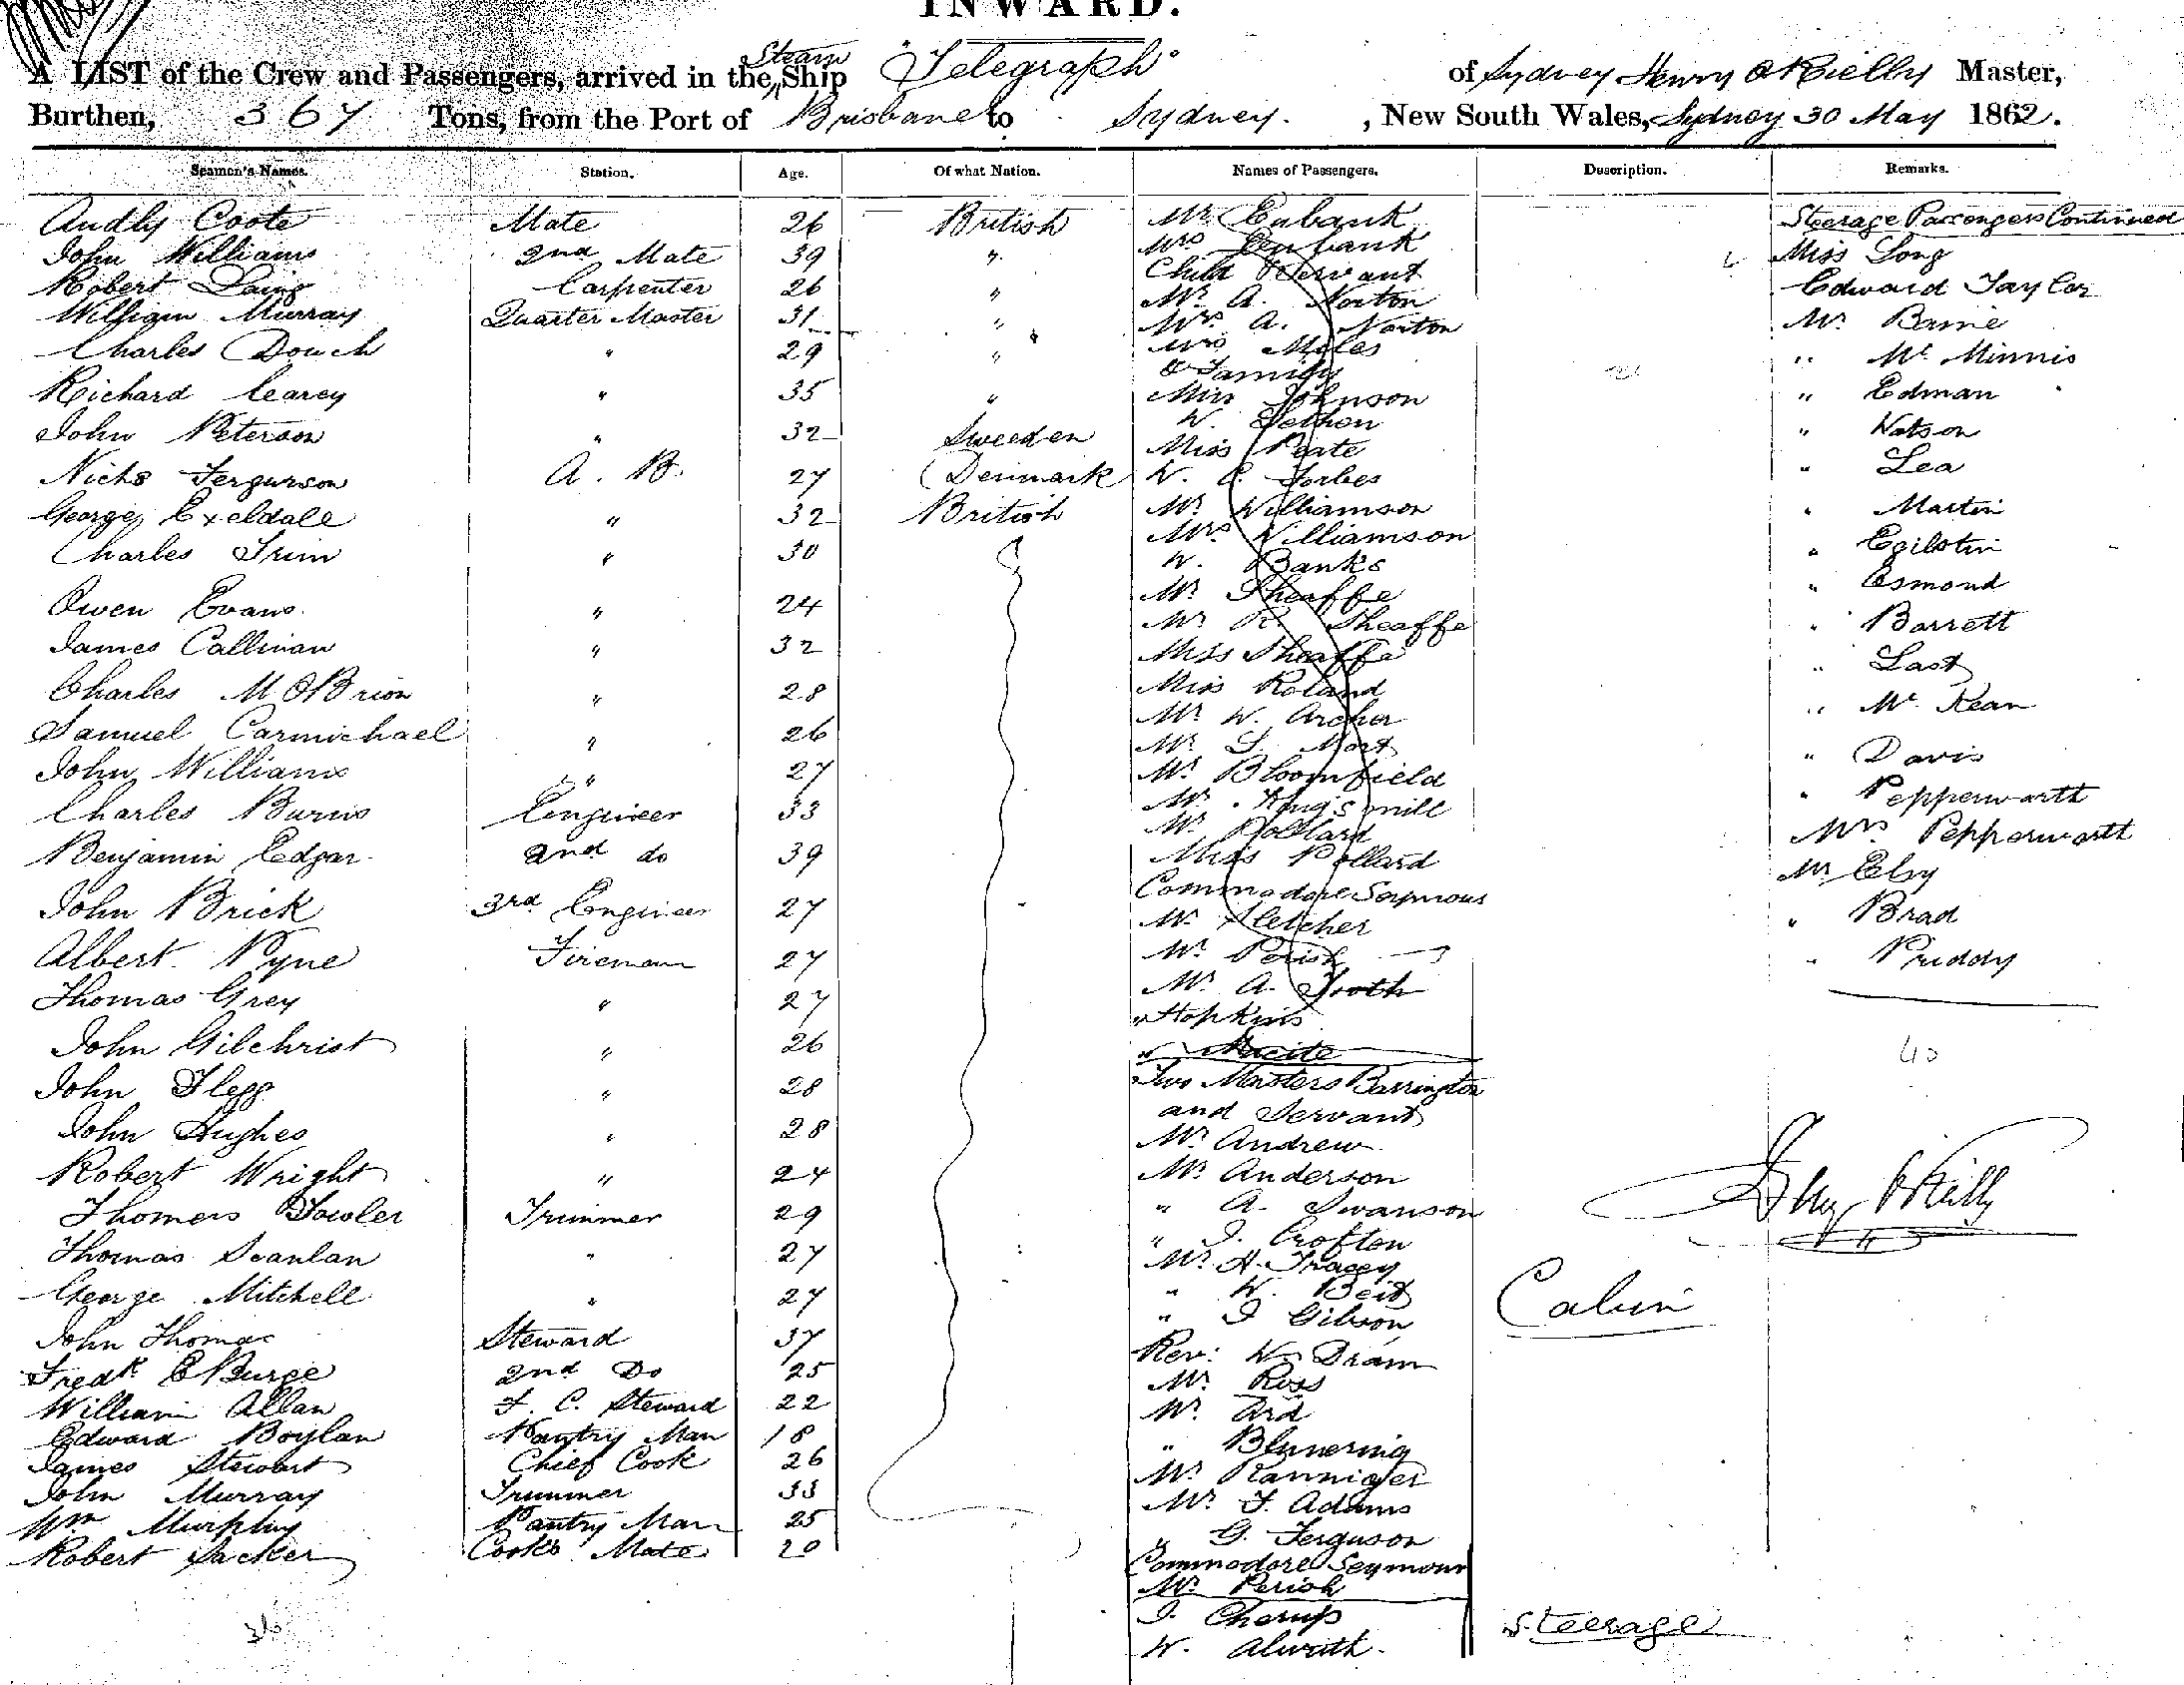 INWARD.
A LIST of the Crew and Passengers, arrived in the Steam Ship "Telegraph" of Sydney Henry O'Rielly Master,
Burthen, 367 Tons, from the Port of Brisbane to Sydney. , New South Wales, Sydney 30 May 1862.
Seamen's Names. Station. Age. Of what Nation. Names of Passengers. Duscription. Remarks.
Audly Coote Mate 26 British Mr Eubank Steerage Passengers Continued
John Williams 2nd Mate 39 " Mrs Eubank Miss Long
Child & Servant
Robert Laing Carpenter 26 " Mr A. Norton Edward Taylor
William Murray Quarter Master 31 " Mrs A. Norton Mr
Charles Douch " 29 " Mrs Moles " Mc Minnis
& Family
Richard Cearey " 35 " Miss Johnson " Edman
W.
John Peterson " 32 Sweeden Miss Peate " Watson
Nichs Fergurson A. B. 27 Denmark W. Forbes " Lea
George Exeldale " 32 British Mr Williamson " Martin
Mrs Williamson
Charles Trim " 30 W. Banks "
Mr Sheaffe " Esmond
Owen Evans. " 24 Mr R. Sheaffe " Barrett
James Callinan " 32 Miss Sheaffe " Last
Charles M. OBrion " 28 Miss Roland " Mc Kean
Mr W. Archer
Samuel Carmichael " 26 Mr Mort " Davis
John Williams " 27 Mr Bloomfield " Pepperwarth
Charles Burns Engineer 33 Mr King's mill Mrs Pepperwarth
Mr Pollard
Benjamin Edgar. 2nd do 39 Miss Pollard Mr Elsy
Commodore Seymour
John Brick 3rd Engineer 27 Mr Fletcher " Brad
Albert Pyne Fireman 27 Mr Perish " Priddy
Thomas Grey " 27 Mr A. Tooth
" Hopkins
John Gilchrist " 26 40
John Flegg " 28 Two Masters Barrington
and Servant
John Hughes " 28 Mr Andrew
Robert Wright " 24 Mr Anderson
Thomers Fowler Trimmer 29 " A. Swanson
" J. Crofton
Thomas Scanlan " 27 Mr H. Tracey
George Mitchell " 27 " W. Beit Cabin
" J Gibson
John Thomas Steward 37 Rev: W
Fredk E Burge 2nd Do 25 Mr Ross
William Allan F. C. Steward 22 Mr Ard
Edward Boylan Pantry Man 18 "
James Stewart Chief Cook 26 Mr Ranniger
John Murray Trimmer 33 Mr J. Adams
Wm Murphy Pantry Man 25 " G. Ferguson
Robert Packer Cooks Mate 20 Commodore Seymour
Mr Perish
J. Cherup Steerage
36 W. Alwrath.